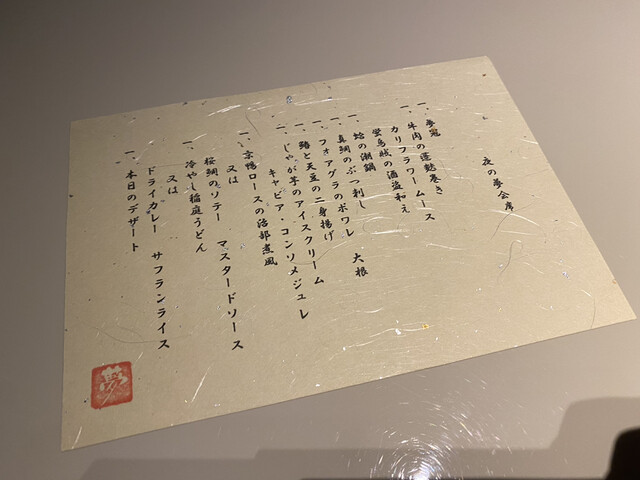 夜の夢会席
一、夢兎
一、牛肉の蓬麩巻き
カリフラワームース
一、蛍烏賊の酒盗和え
一、蛤の潮鍋
一、真鯛のぶつ刺し
一、フォアグラのポワレ　大根
一、鰆と天豆の二身揚げ
一、じゃが芋のアイスクリーム
キャビア・コンソメジュレ
一、京鴨ロースの治部煮風
又は
桜鯛のソテー　マスタードソース
一、冷やし稲庭うどん
又は
ドライカレー　サフランライス
一、本日のデザート
夢